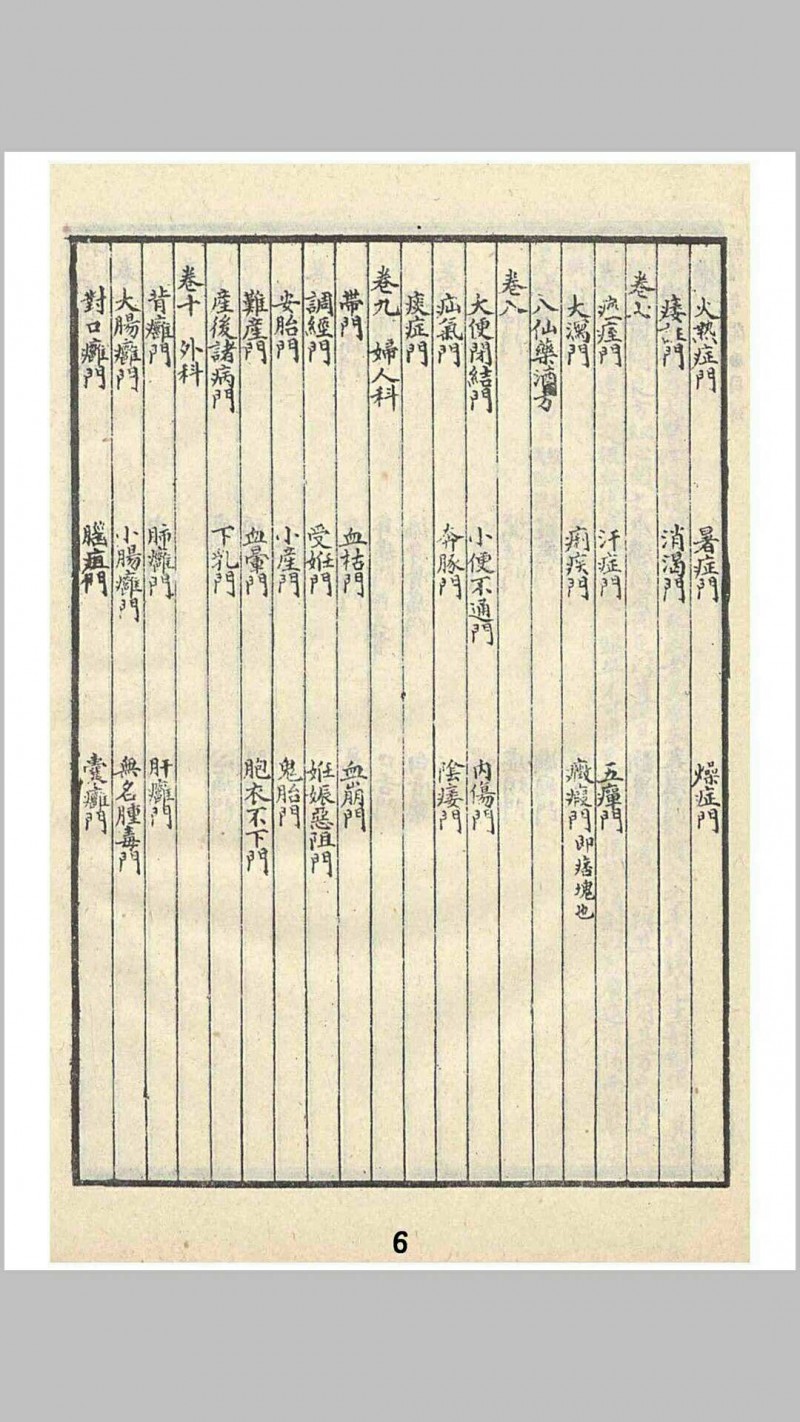 火熱症門 暑症門 燥症門
痿症門 消渴門
卷七
痙門 汗症門 五癉門
大瀉門 痢疾門 癥瘕門即痞塊也
八仙藥酒方
卷八
大便閉結門 小便不通門 內傷門
疝氣門 奔豚門 陰痿門
痰症門
卷九 婦人科
帶門 血枯門 血崩門
調經門 受姙門 姙娠惡阻門
安胎門 小產門 鬼胎門
難產門 血暈門 胞衣不下門
産後諸病門 下乳門
卷十 外科
背癰門 肺癰門 肝癰門
大腸癰門 小腸癰門 無名腫毒門
對口癰門 腦疽門 囊癰門
6